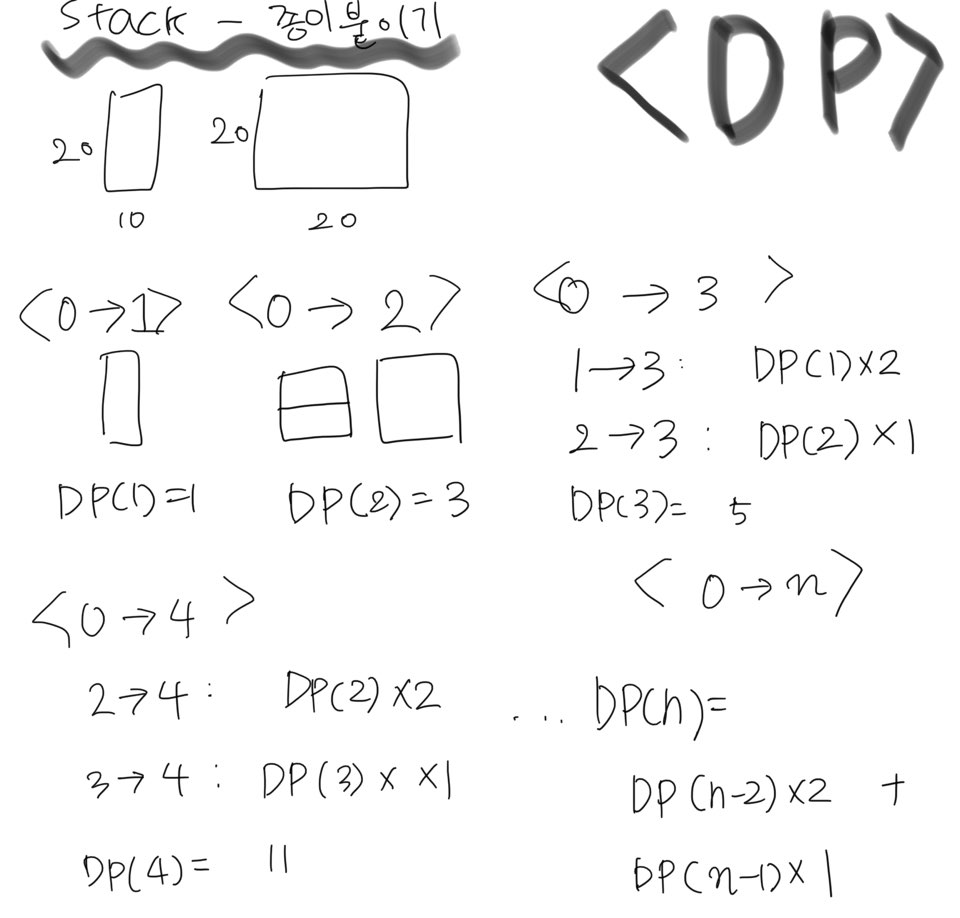 Stack - 종이붙이기
<DP>
20 20
10 20
<0→1> <0→2>
DP(1)=1 DP(2)=3
<0→3>
1→3: DP(1)×2
2→3: DP(2)×1
DP(3)= 5
<0→4>
2→4: DP(2)×2
3→4: DP(3)× ×1
DP(4)= 11
<0→n>
... DP(n)=
DP(n-2)×2 +
DP(n-1)×1